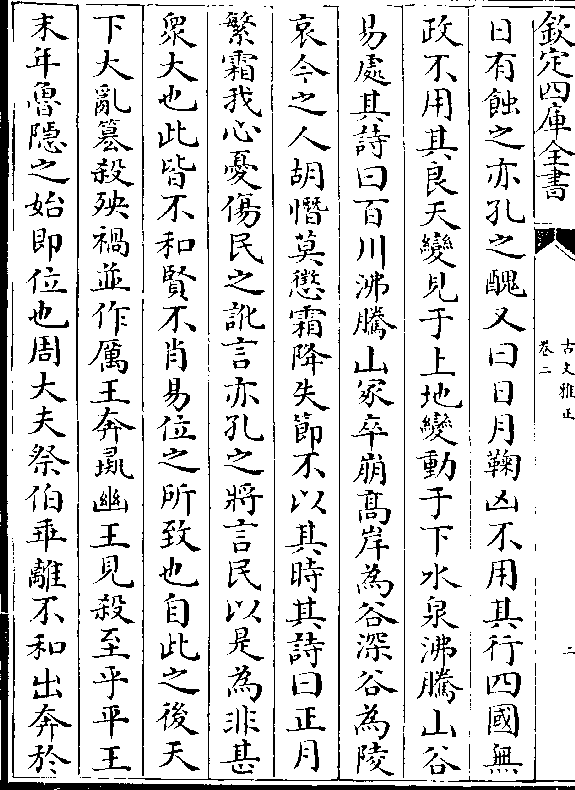 欽定四庫全書
古文雅正
卷二
二
日有蝕之亦孔之醜又曰日月鞠凶不用其行四國無
政不用其良天變見于上地變動于下水泉沸騰山谷
易處其詩曰百川沸騰山冢卒崩髙岸為谷深谷為陵
哀今之人胡憯莫懲霜降失節不以其時其詩曰正月
繁霜我心憂傷民之訛言亦孔之將言民以是為非甚
衆大也此皆不和賢不肖易位之所致也自此之後天
下大亂簒殺殃禍並作厲王奔彘幽王見殺至乎平王
末年魯隱之始即位也周大夫祭伯乖離不和出奔於